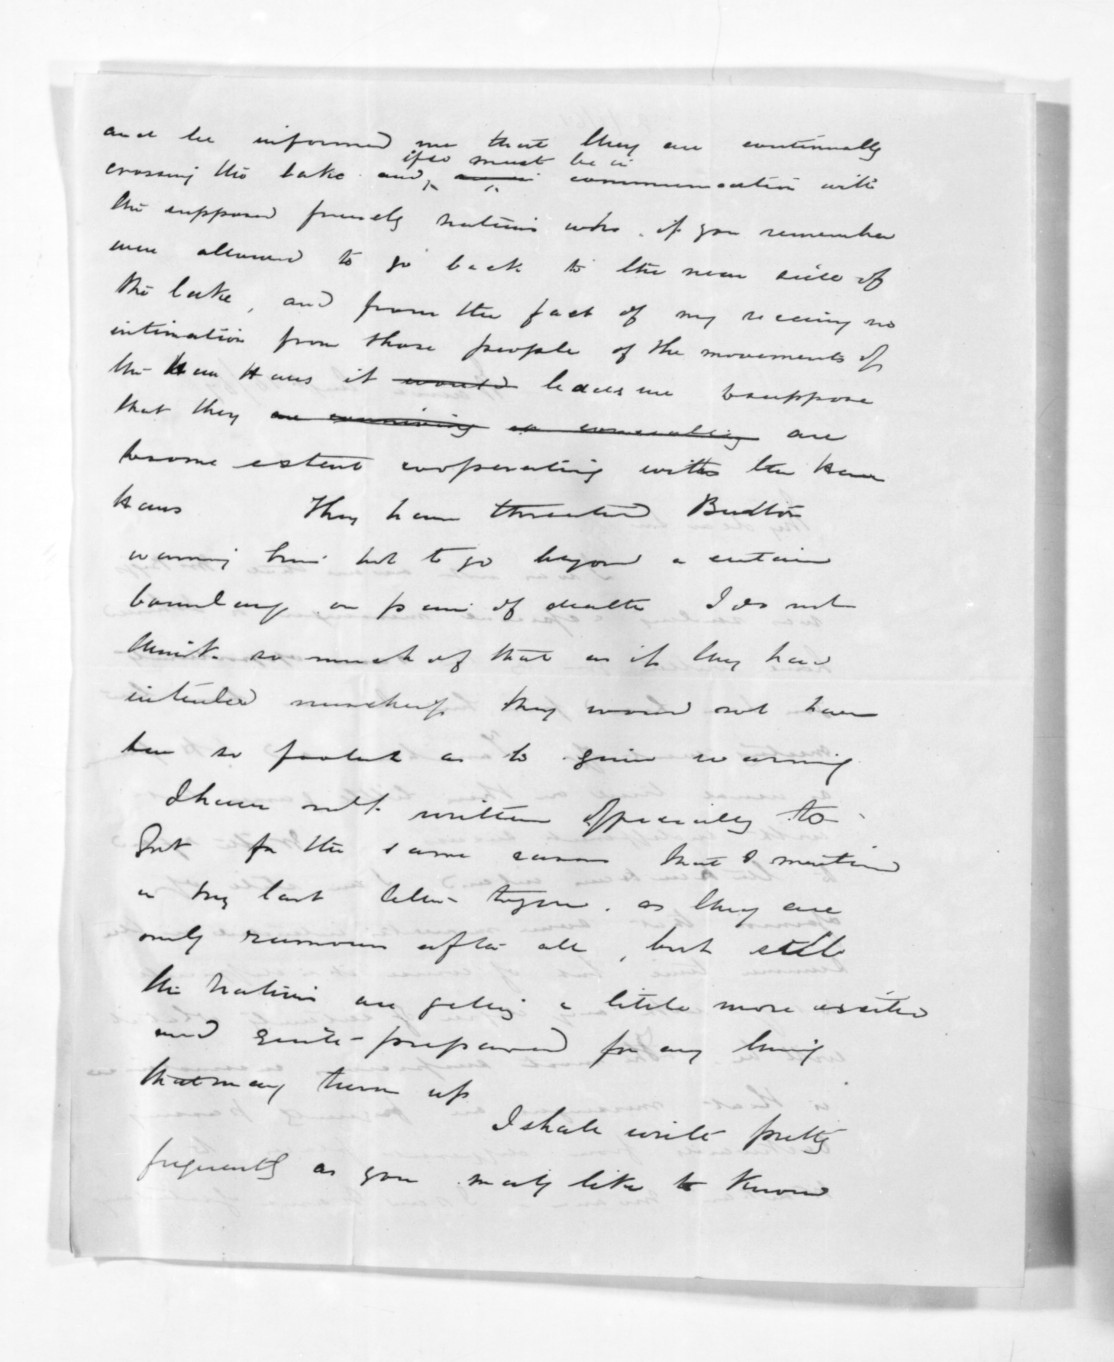 and he informed me that they are continually
if so must be in
crossing the lake and, communication with
the supposed friendly natives who, if you remember
were allowed to go back to the near side of
the lake, and from the fact of my receiving no
intimation from those people of the movements of
the Hau Haus it would leads me to suppose
that they are conniving or concealing are
to some extent cooperating with the Hau
Haus They have threatened
warning him not to go beyond a certain
boundary on pain of death I do not
think so much of that as if they had
intended mischief they would not have
been so foolish as to give warning
I have not written officially to
Govt for the same reason that I mention
in my last letter to you. as they are
only rumours after all, but still
the natives are getting a little more excited
and quite prepared for any thing
that may turn up
I shall write pretty
frequently as you may like to know